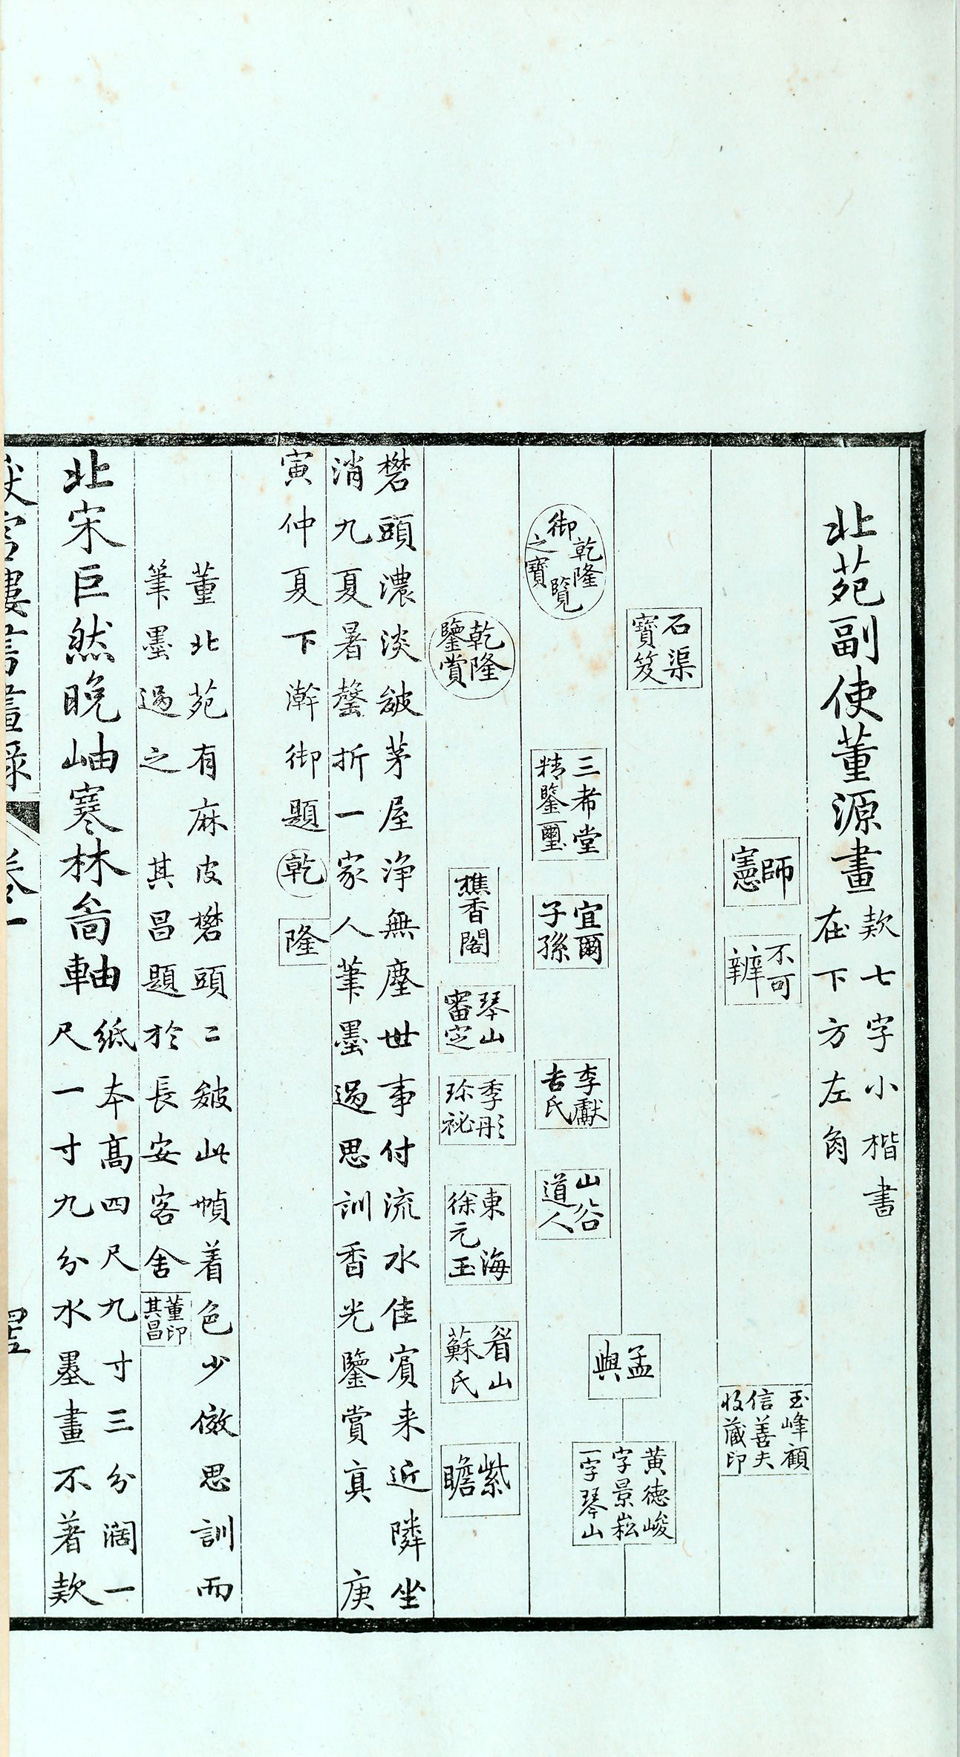 北苑副使董源畫款七字小楷書
在下方左角
師憲
不可辨
玉峰顧信善夫收藏印
石渠寶笈
孟與
黃德峻字景崧一字琴山
乾隆御覽之寶
三希堂精鑒璽
宜爾子孫
李獻吉氏
山谷道人
乾隆鑒賞
樵香閣
琴山審定
季彤珍祕
東海徐元玉
眉山蘇氏
紫瞻
礬頭濃淡皴茅屋浄無塵世事付流水佳賓来近隣坐
消九夏暑罄折一家人筆墨過思訓香光鑒賞真 庚
寅仲夏下澣御題 乾 隆
董北苑有麻皮礬頭二皴此幀着色少倣思訓而
筆墨過之 其昌題於長安客舍 董其昌印
北宋巨然晚岫寒林啚軸紙本高四尺九寸三分濶一
尺一寸九分水墨畫不著款
嶽雪樓書畫錄 卷一